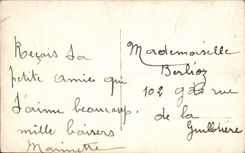 Reçois ta
petite amie qui
t'aime beaucoup.
mille baisers
Marinette
Mademoiselle
Berlioz
102 gde rue
de la
Guillotière